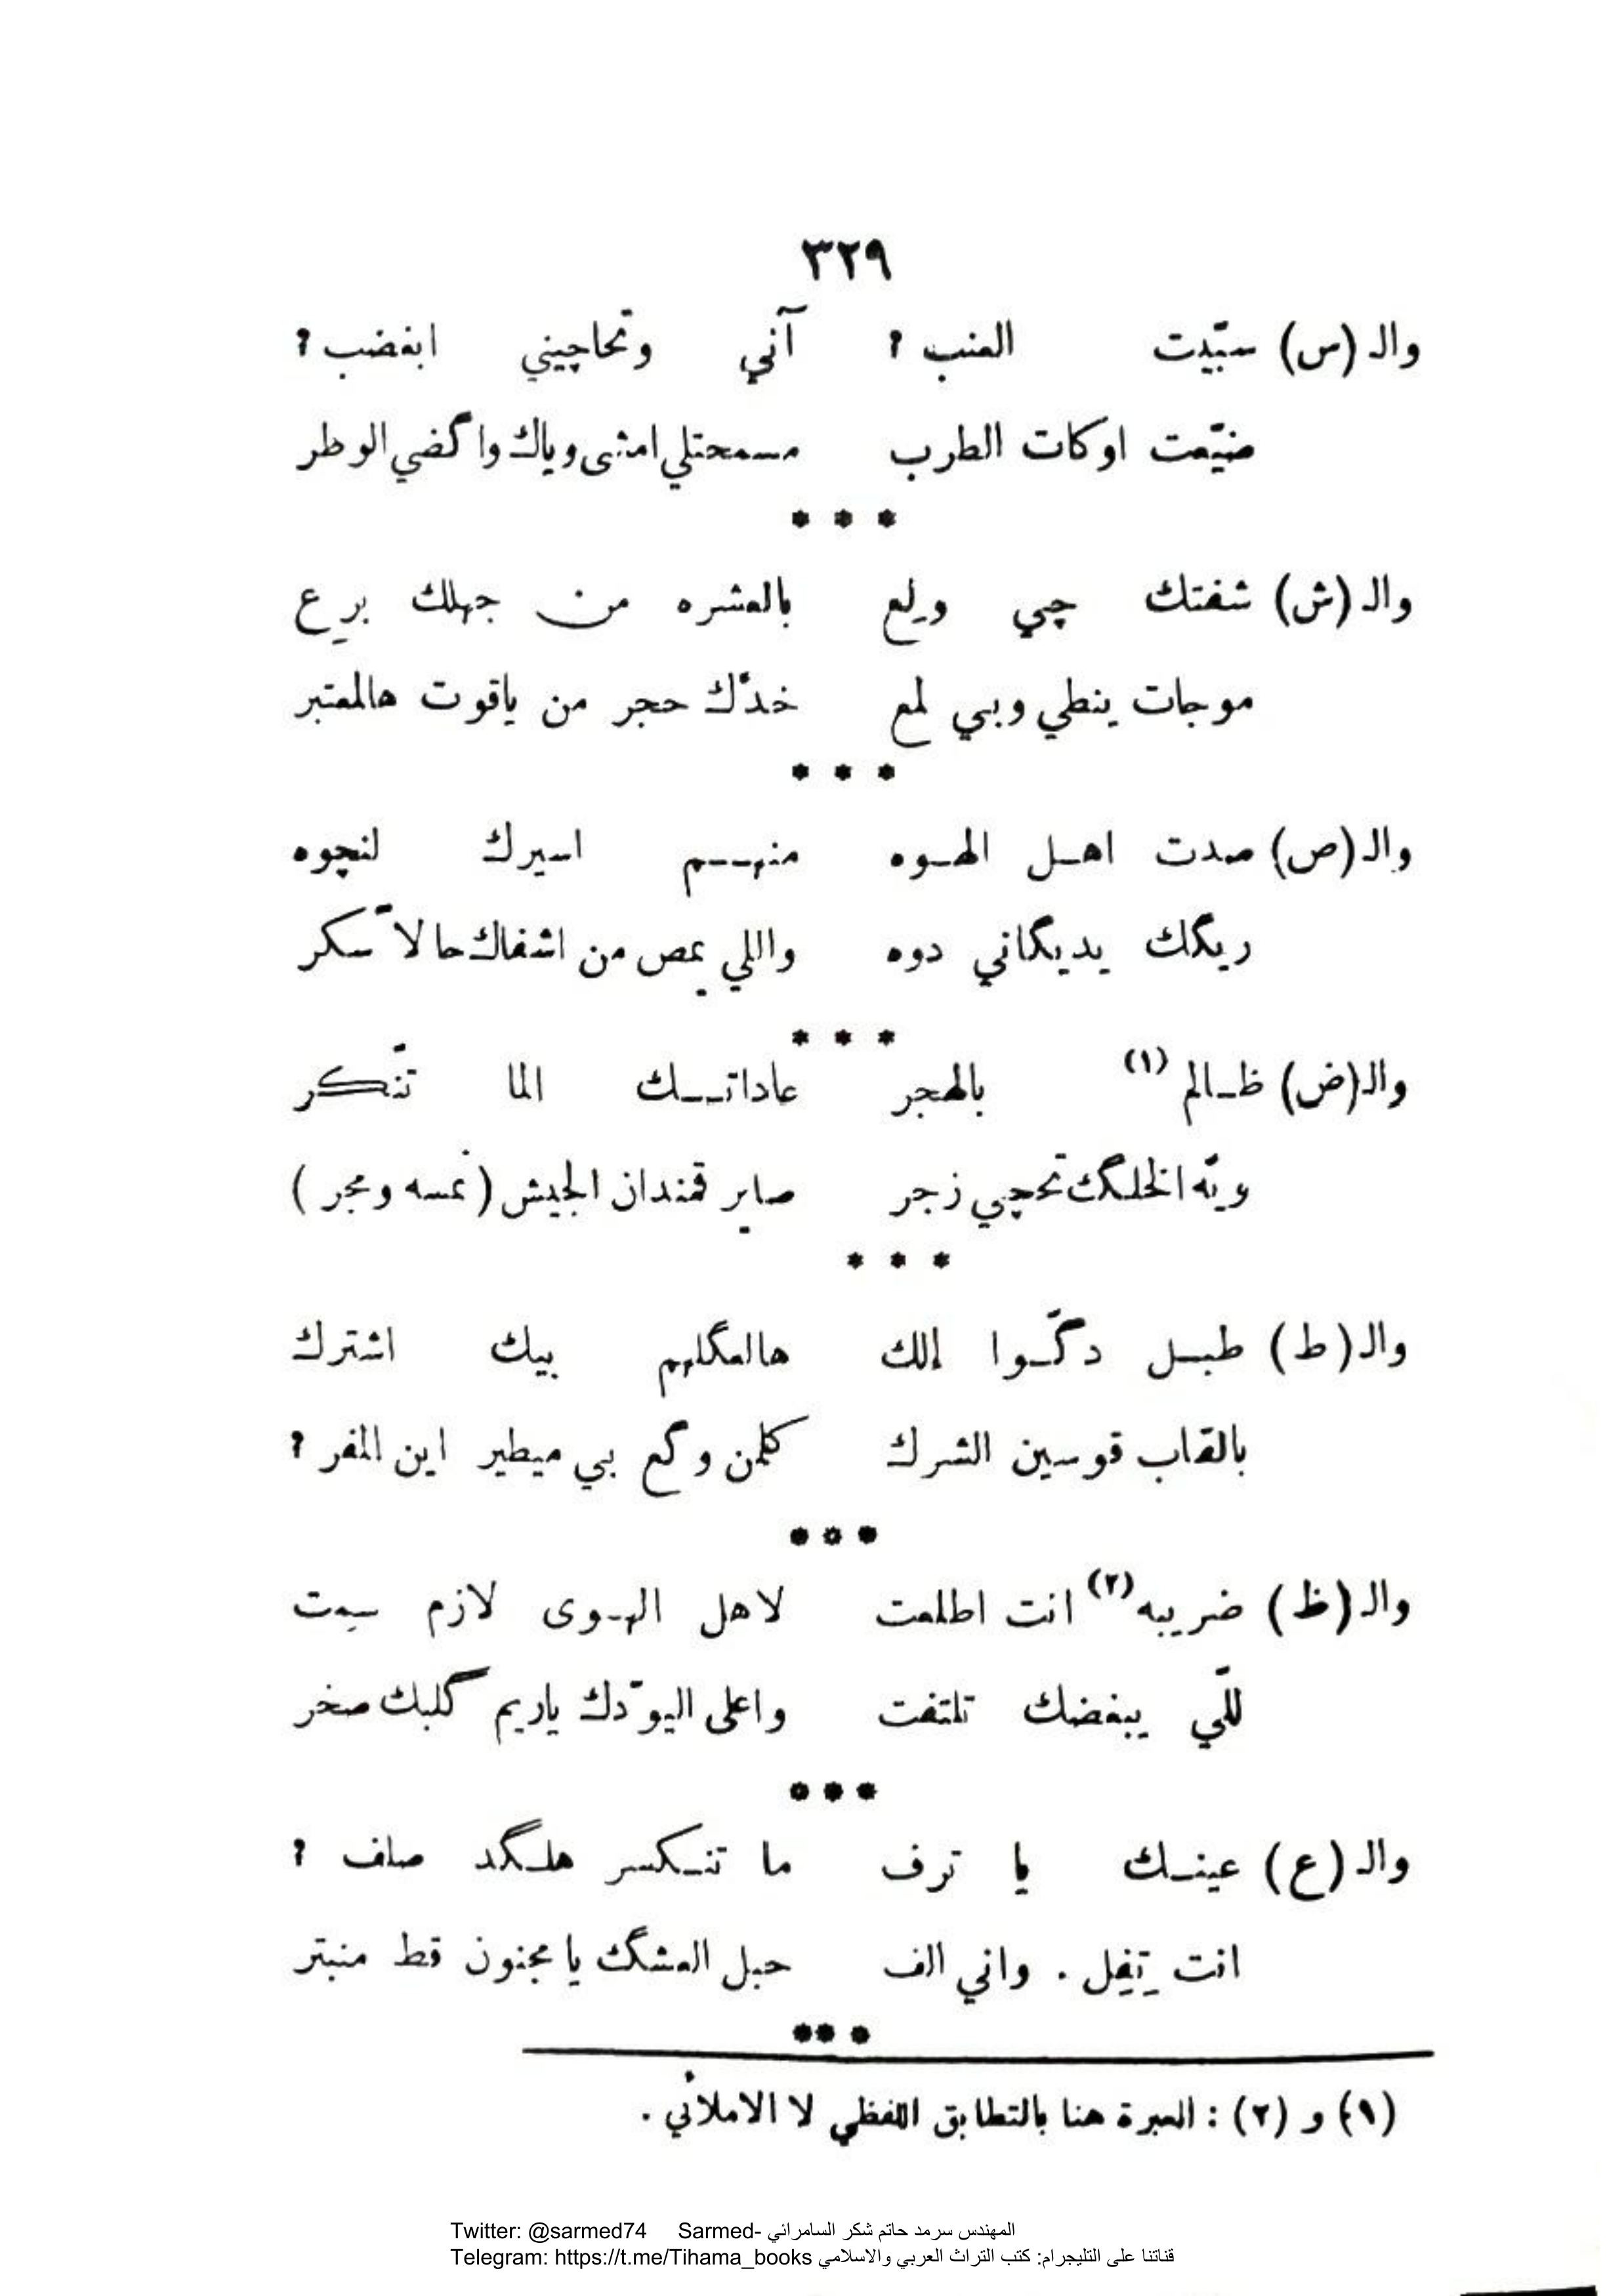 ٣٢٩
والـ (س) سبّبت العتب ؟ آني وتحاچيني ابغضب ؟
ضيّعت اوكات الطرب مسمحتلي امشى وياك واگضي الوطر
* * *
والـ (ش) شفتك چي ولع بالعشره من جهلك برع
موجات ينطي وبي لمع خدّك حجر من ياقوت هالمعتبر
* * *
والـ (ص) صدت اهـل الهـوه منهـم اسيرك لنچوه
ريگك يديگاني دوه واللي يمص من اشفاك حالاً سكر
* * *
والـ (ض) ظـالم (١) بالهجر عاداتـك الما تنّكر
ويّه الخلگك تحچي زجر صاير قمندان الجيش (نمسه ومجر)
* * *
والـ (ط) طبـل دگـّوا إلك هالعگلهم بيك اشترك
بالقاب قوسين الشرك كلمن وگع بي ميطير اين المفر ؟
* * *
والـ (ظ) ضريبه (٢) انت اطلعت لاهل الهـوى لازم سِت
للّي يبغضك تلتفت واعلى اليودّك ياريم گلبك صخر
* * *
والـ (ع) عينـك يا ترف ما تنـكسر هلـگد صلف ؟
انت تِفِل . واني الف حبل العشگ يا مجنون قط منبتر
* * *
(١) و (٢) : العبرة هنا بالتطابق اللفظي لا الاملائي .
Twitter: @sarmed74 Sarmed- المهندس سرمد حاتم شكر السامرائي
Telegram: https://t.me/Tihama_books قناتنا على التليجرام: كتب التراث العربي والاسلامي